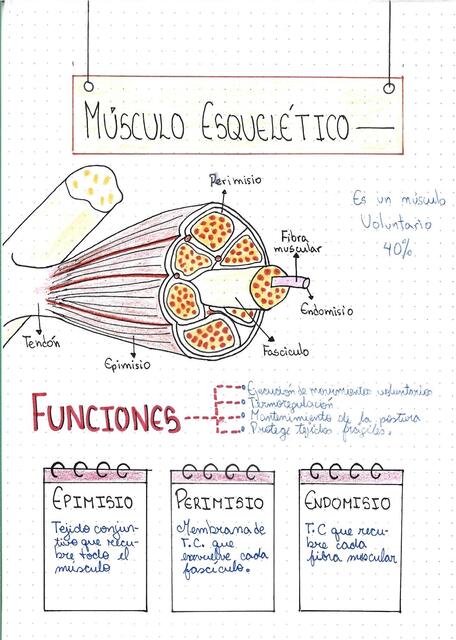 MÚSCULO ESQUELÉTICO
Perimisio
Es un músculo
Voluntario
40%
Fibra
muscular
Endomisio
Fascículo
Tendón
Epimisio
FUNCIONES
Ejecución de movimientos voluntarios
Termoregulación
Mantenimiento de la postura
Protege tejidos frágiles.
EPIMISIO
Tejido conjun-
tivo que recu-
bre todo el
músculo
PERIMISIO
Membrana de
T.C. que
envuelve cada
fascículo.
ENDOMISIO
T.C que recu-
bre cada
fibra muscular